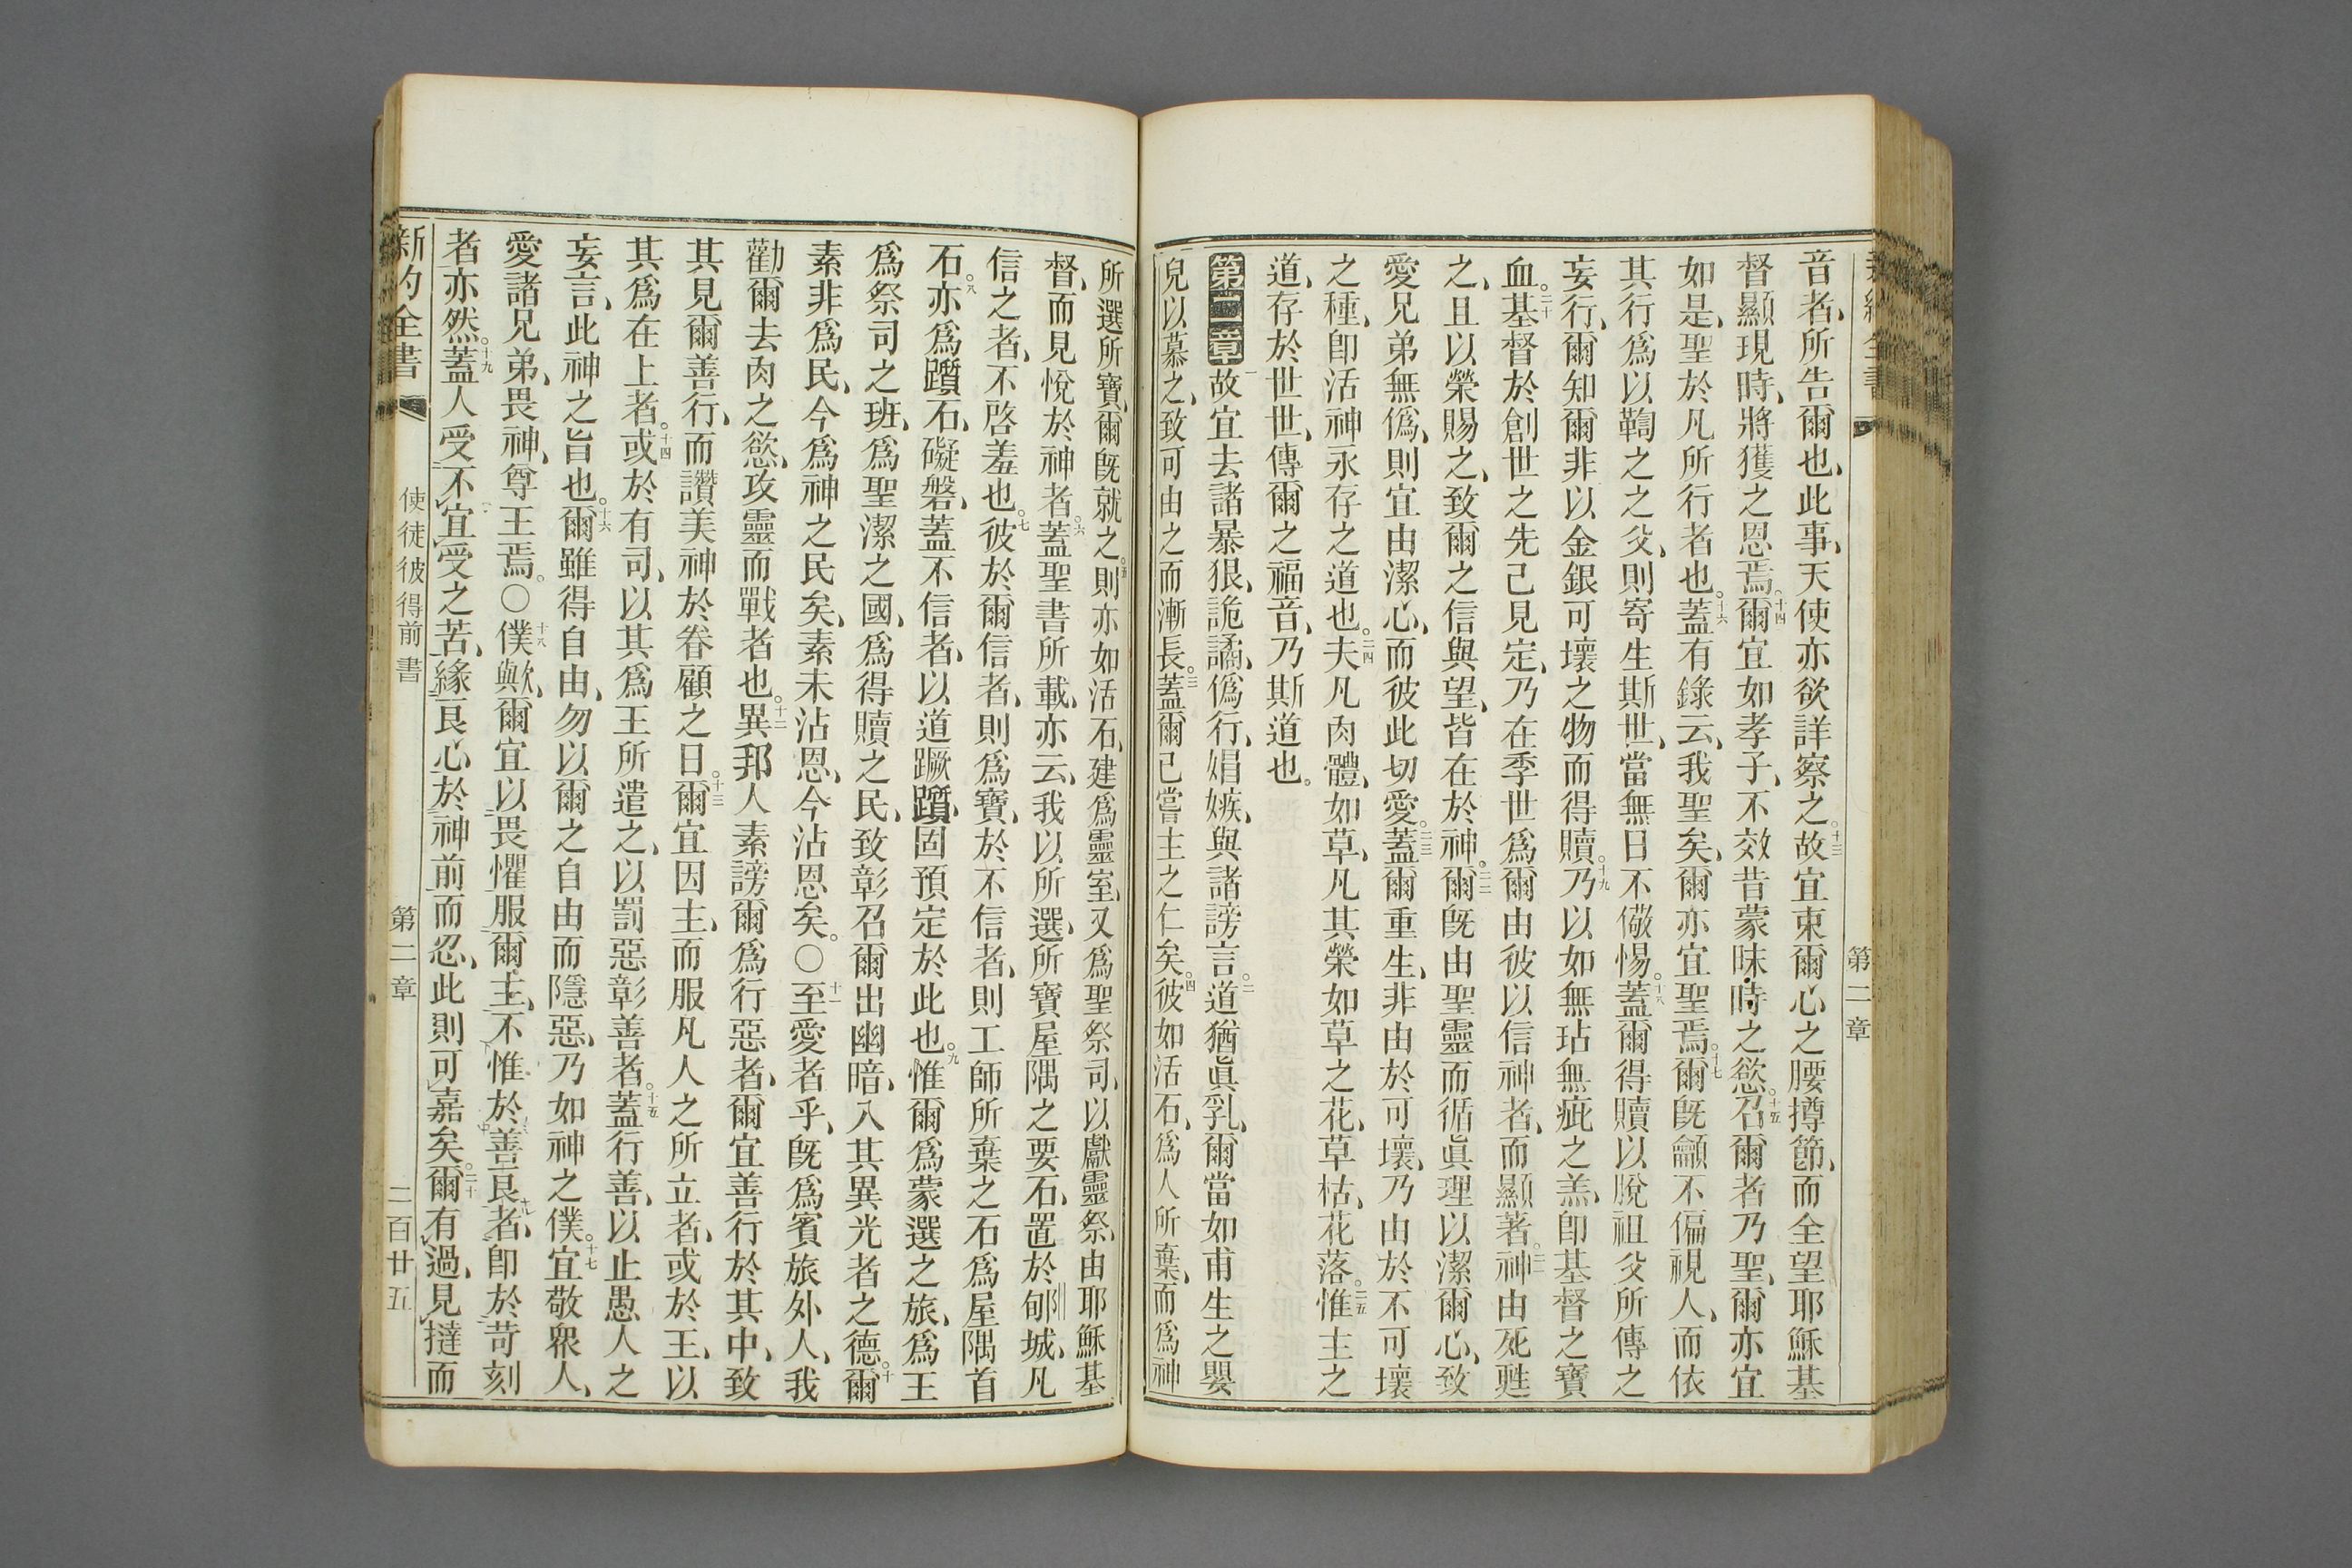 第二章
音者、所告爾也、此事、天使亦欲詳察之。十三故宜束爾心之腰撙節、而全望耶穌基
督顯現時、將獲之恩焉。十四爾宜如孝子、不效昔蒙昧時之慾。十五召爾者乃聖、爾亦宜
如是、聖於凡所行者也。十六蓋有錄云、我聖矣、爾亦宜聖焉。十七爾旣龥不偏視人、而依
其行爲以鞫之之父、則寄生斯世、當無日不儆惕。十八蓋爾得贖以脫祖父所傳之
妄行、爾知爾非以金銀可壞之物而得贖。十九乃以如無玷無疵之羔、卽基督之寶
血。二十基督於創世之先已見定、乃在季世爲爾由彼以信神者、而顯著。二一神由死甦
之、且以榮賜之、致爾之信與望、皆在於神。二二爾旣由聖靈而循眞理以潔爾心、致
愛兄弟無僞、則宜由潔心、而彼此切愛。二三蓋爾重生、非由於可壞、乃由於不可壞
之種、卽活神永存之道也。二四夫凡肉體、如草、凡其榮如草之花、草枯、花落。二五惟主之
道、存於世世、傳爾之福音、乃斯道也。
第二章一故宜去諸暴狠、詭譎、僞行、娼嫉、與諸謗言。二道猶眞乳、爾當如甫生之嬰
兒以慕之、致可由之而漸長。三蓋爾已嘗主之仁矣。四彼如活石、爲人所棄、而爲神
所選所寶、爾旣就之。五則亦如活石、建爲靈室、又爲聖祭司、以獻靈祭、由耶穌基
督、而見悅於神者。六蓋聖書所載、亦云、我以所選、所寶屋隅之要石、置於郇城、凡
信之者、不啓羞也。七彼於爾信者、則爲寶、於不信者、則工師所棄之石爲屋隅首
石。八亦爲躓石、礙磐、蓋不信者、以道蹶躓、固預定於此也。九惟爾爲蒙選之旅、爲王
爲祭司之班、爲聖潔之國、爲得贖之民、致彰召爾出幽暗、入其異光者之德。十爾
素非爲民、今爲神之民矣、素未沾恩、今沾恩矣。〇十一至愛者乎、旣爲賓旅外人、我
勸爾去肉之慾、攻靈而戰者也。十二異邦人素謗爾爲行惡者、爾宜善行於其中、致
其見爾善行、而讚美神於眷顧之日。十三爾宜因主、而服凡人之所立者、或於王、以
其爲在上者。十四或於有司、以其爲王所遣之、以罰惡彰善者。十五蓋行善、以止愚人之
妄言、此神之旨也。十六爾雖得自由、勿以爾之自由而隱惡、乃如神之僕。十七宜敬衆人、
愛諸兄弟、畏神、尊王焉。〇十八僕歟、爾宜以畏懼服爾主、不惟於善良者、卽於苛刻
者亦然。十九蓋人受不宜受之苦、緣良心於神前而忍、此則可嘉矣。二十爾有過、見撻而
新約全書 使徒彼得前書 第二章 二百廿五